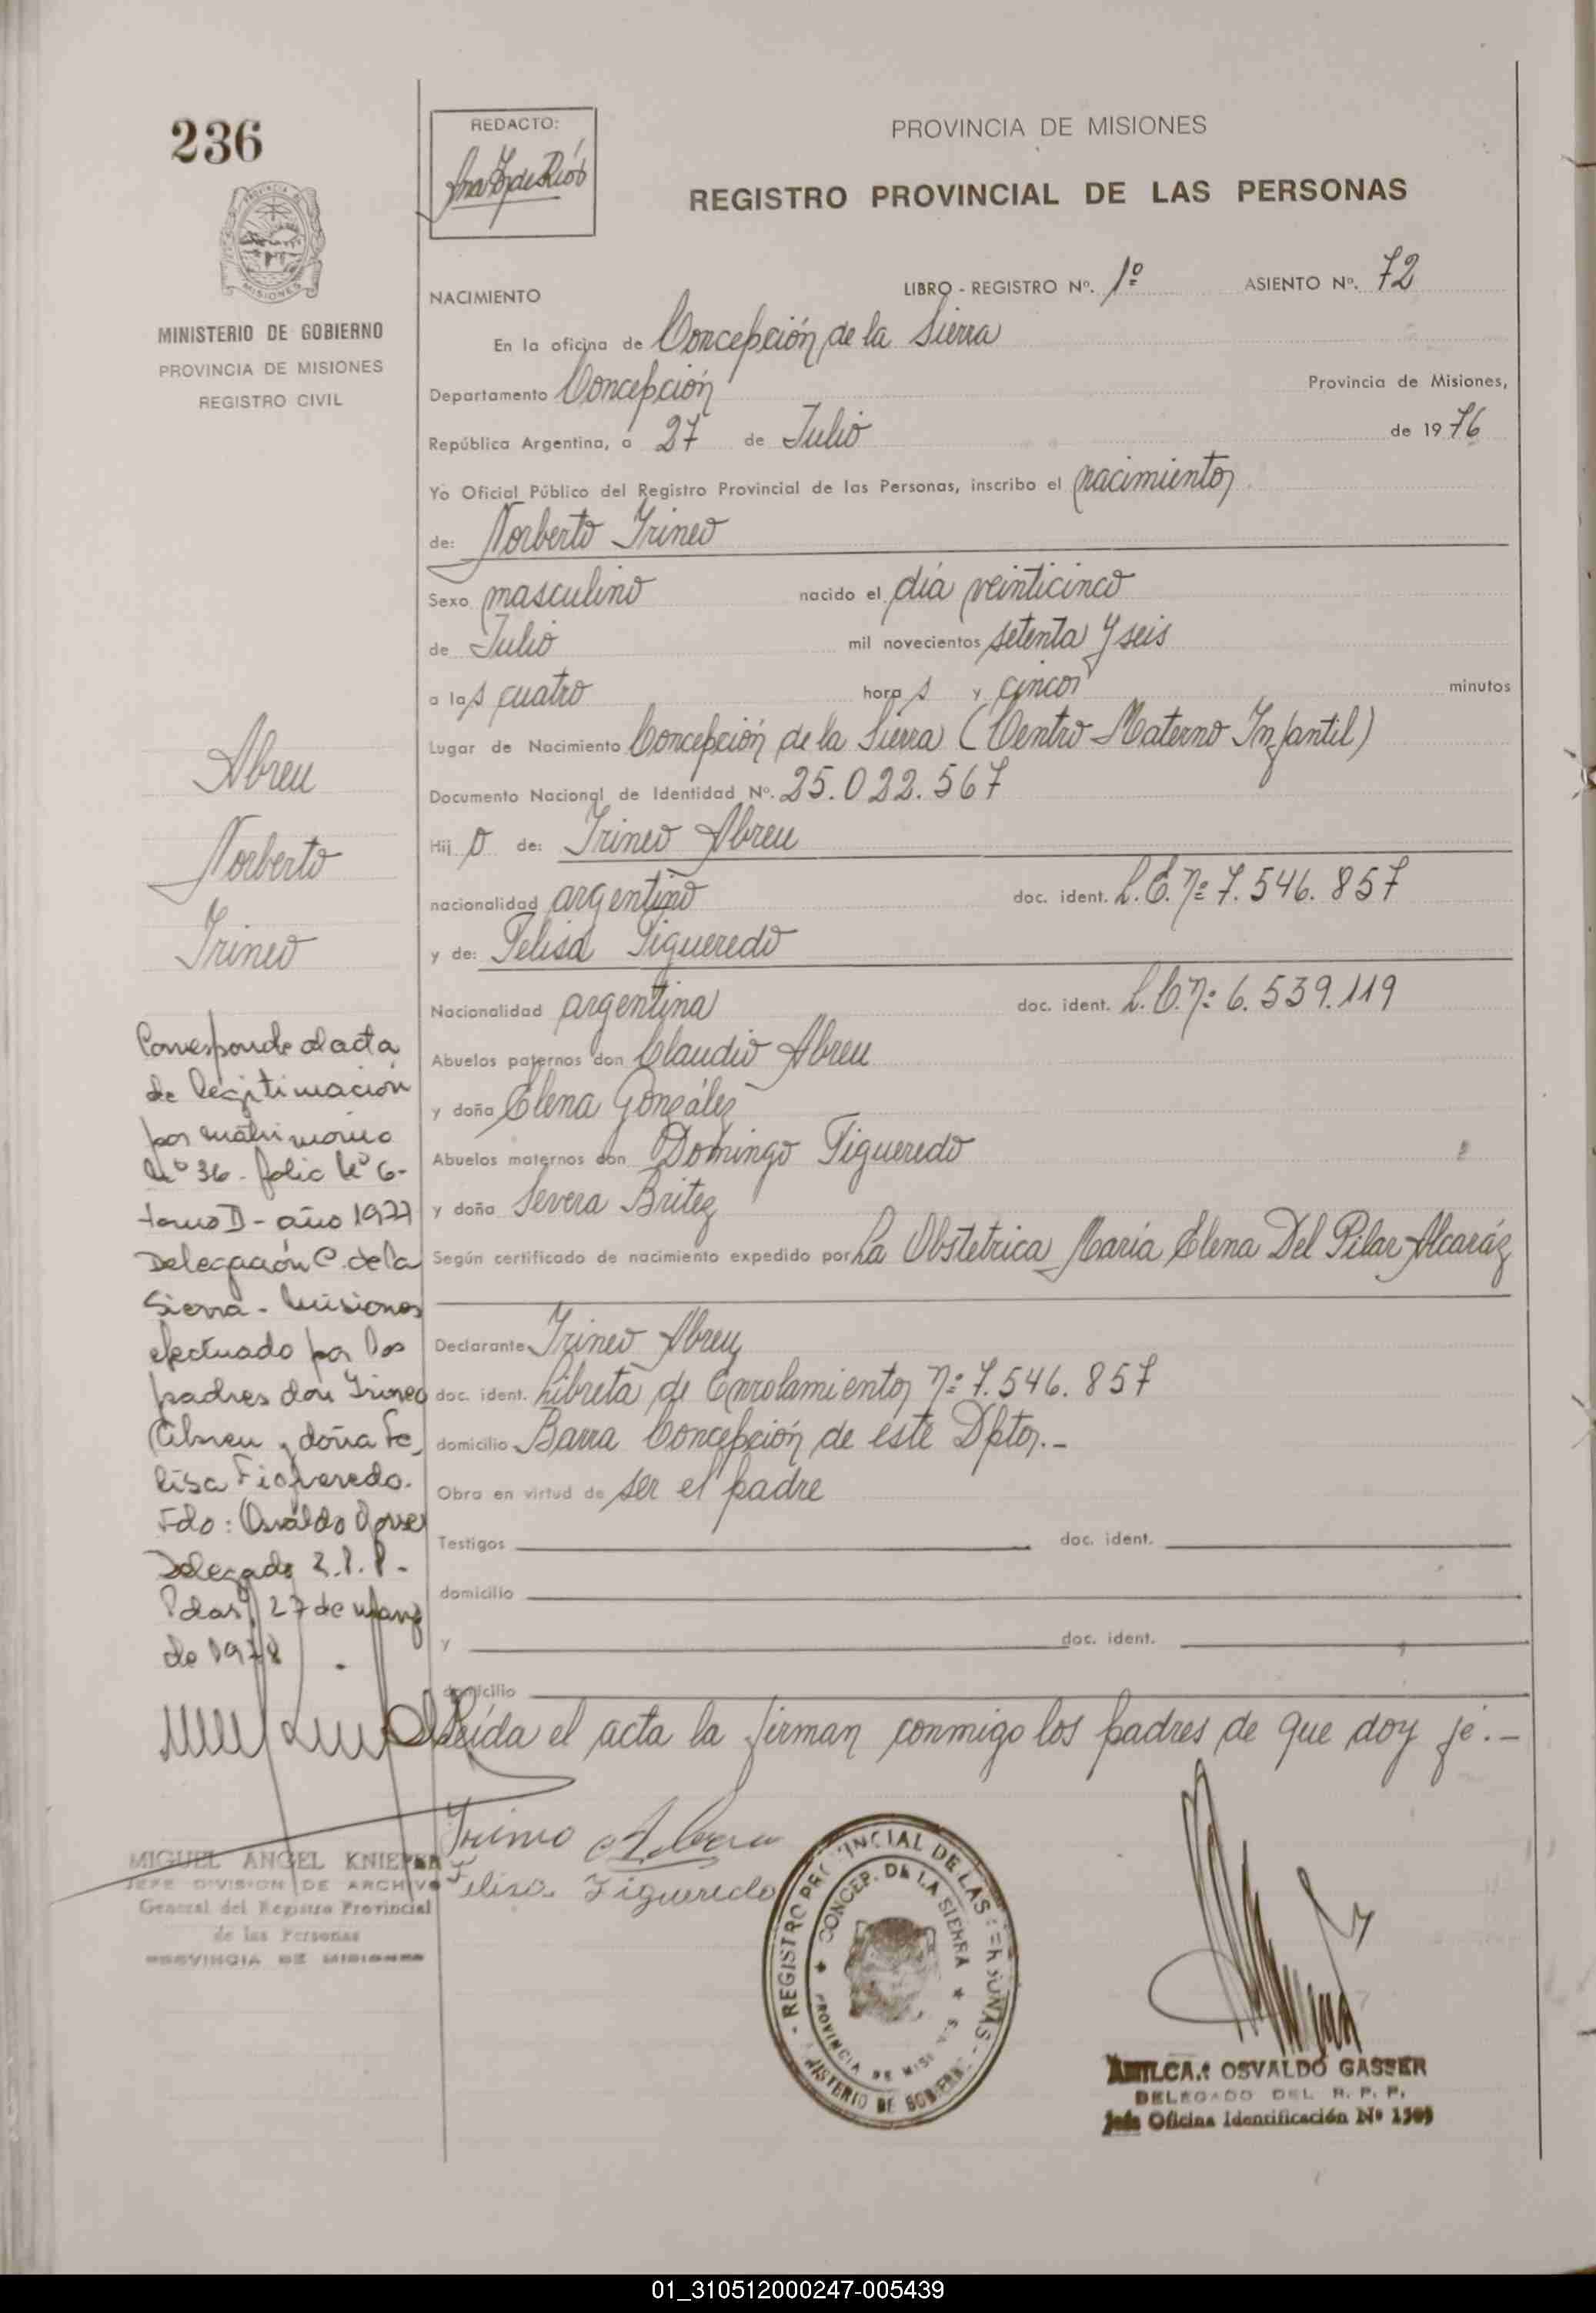 236
REDACTO:
PROVINCIA DE MISIONES
REGISTRO PROVINCIAL DE LAS PERSONAS
MISIONES
MINISTERIO DE GOBIERNO
PROVINCIA DE MISIONES
REGISTRO CIVIL
NACIMIENTO LIBRO - REGISTRO Nº. 1º ASIENTO Nº. 72
En la oficina de Concepción de la Sierra
Departamento Concepción Provincia de Misiones,
República Argentina, a 27 de Julio de 1976
Yo Oficial Público del Registro Provincial de las Personas, inscribo el nacimiento
de: Norberto Irineo
Sexo masculino nacido el día veinticinco
de Julio mil novecientos setenta y seis
a las cuatro horas y cinco minutos
Lugar de Nacimiento Concepción de la Sierra (Centro Materno Infantil)
Documento Nacional de Identidad Nº. 25.022.567
Hijo de: Irineo Abreu
nacionalidad argentino doc. ident. L.E. nº 7.546.857
y de: Felisa Figueredo
Nacionalidad argentina doc. ident. L.C. nº 6.539.119
Abuelos paternos don Claudio Abreu
y doña Elena González
Abuelos maternos don Domingo Figueredo
y doña Severa Britez
Según certificado de nacimiento expedido por La Obstetrica María Elena Del Pilar Alcaráz
Declarante Irineo Abreu
doc. ident. Libreta de Enrolamiento nº 7.546.857
domicilio Barra Concepción de este Dpto.-
Obra en virtud de ser el padre
Testigos doc. ident.
domicilio
y doc. ident.
domicilio
Leída el acta la firman conmigo los padres de que doy fé.-
Abreu
Norberto
Irineo
Corresponde al acta
de legitimación
por matrimonio
Nº 36 - folio Nº 6-
tomo D - año 1977
Delegación C. de la
Sierra - Misiones
efectuado por los
padres don Irineo
Abreu y doña Fe
lisa Figueredo.
Fdo: Osvaldo Gasser
Delegado R.P.P.-
Pdas, 27 de marzo
de 1978
MIGUEL ANGEL KNIEPER
JEFE DIVISION DE ARCHIVO
General del Registro Provincial
de las Personas
PROVINCIA DE MISIONES
Irineo Abreu
Felisa Figueredo
REGISTRO PROVINCIAL DE LAS PERSONAS
CONCEP. DE LA SIERRA
PROVINCIA DE MISIONES
MINISTERIO DE GOBIERNO
AMILCAR OSVALDO GASSER
DELEGADO DEL R. P. P.
Jefe Oficina Identificación Nº 1509
01_310512000247-005439